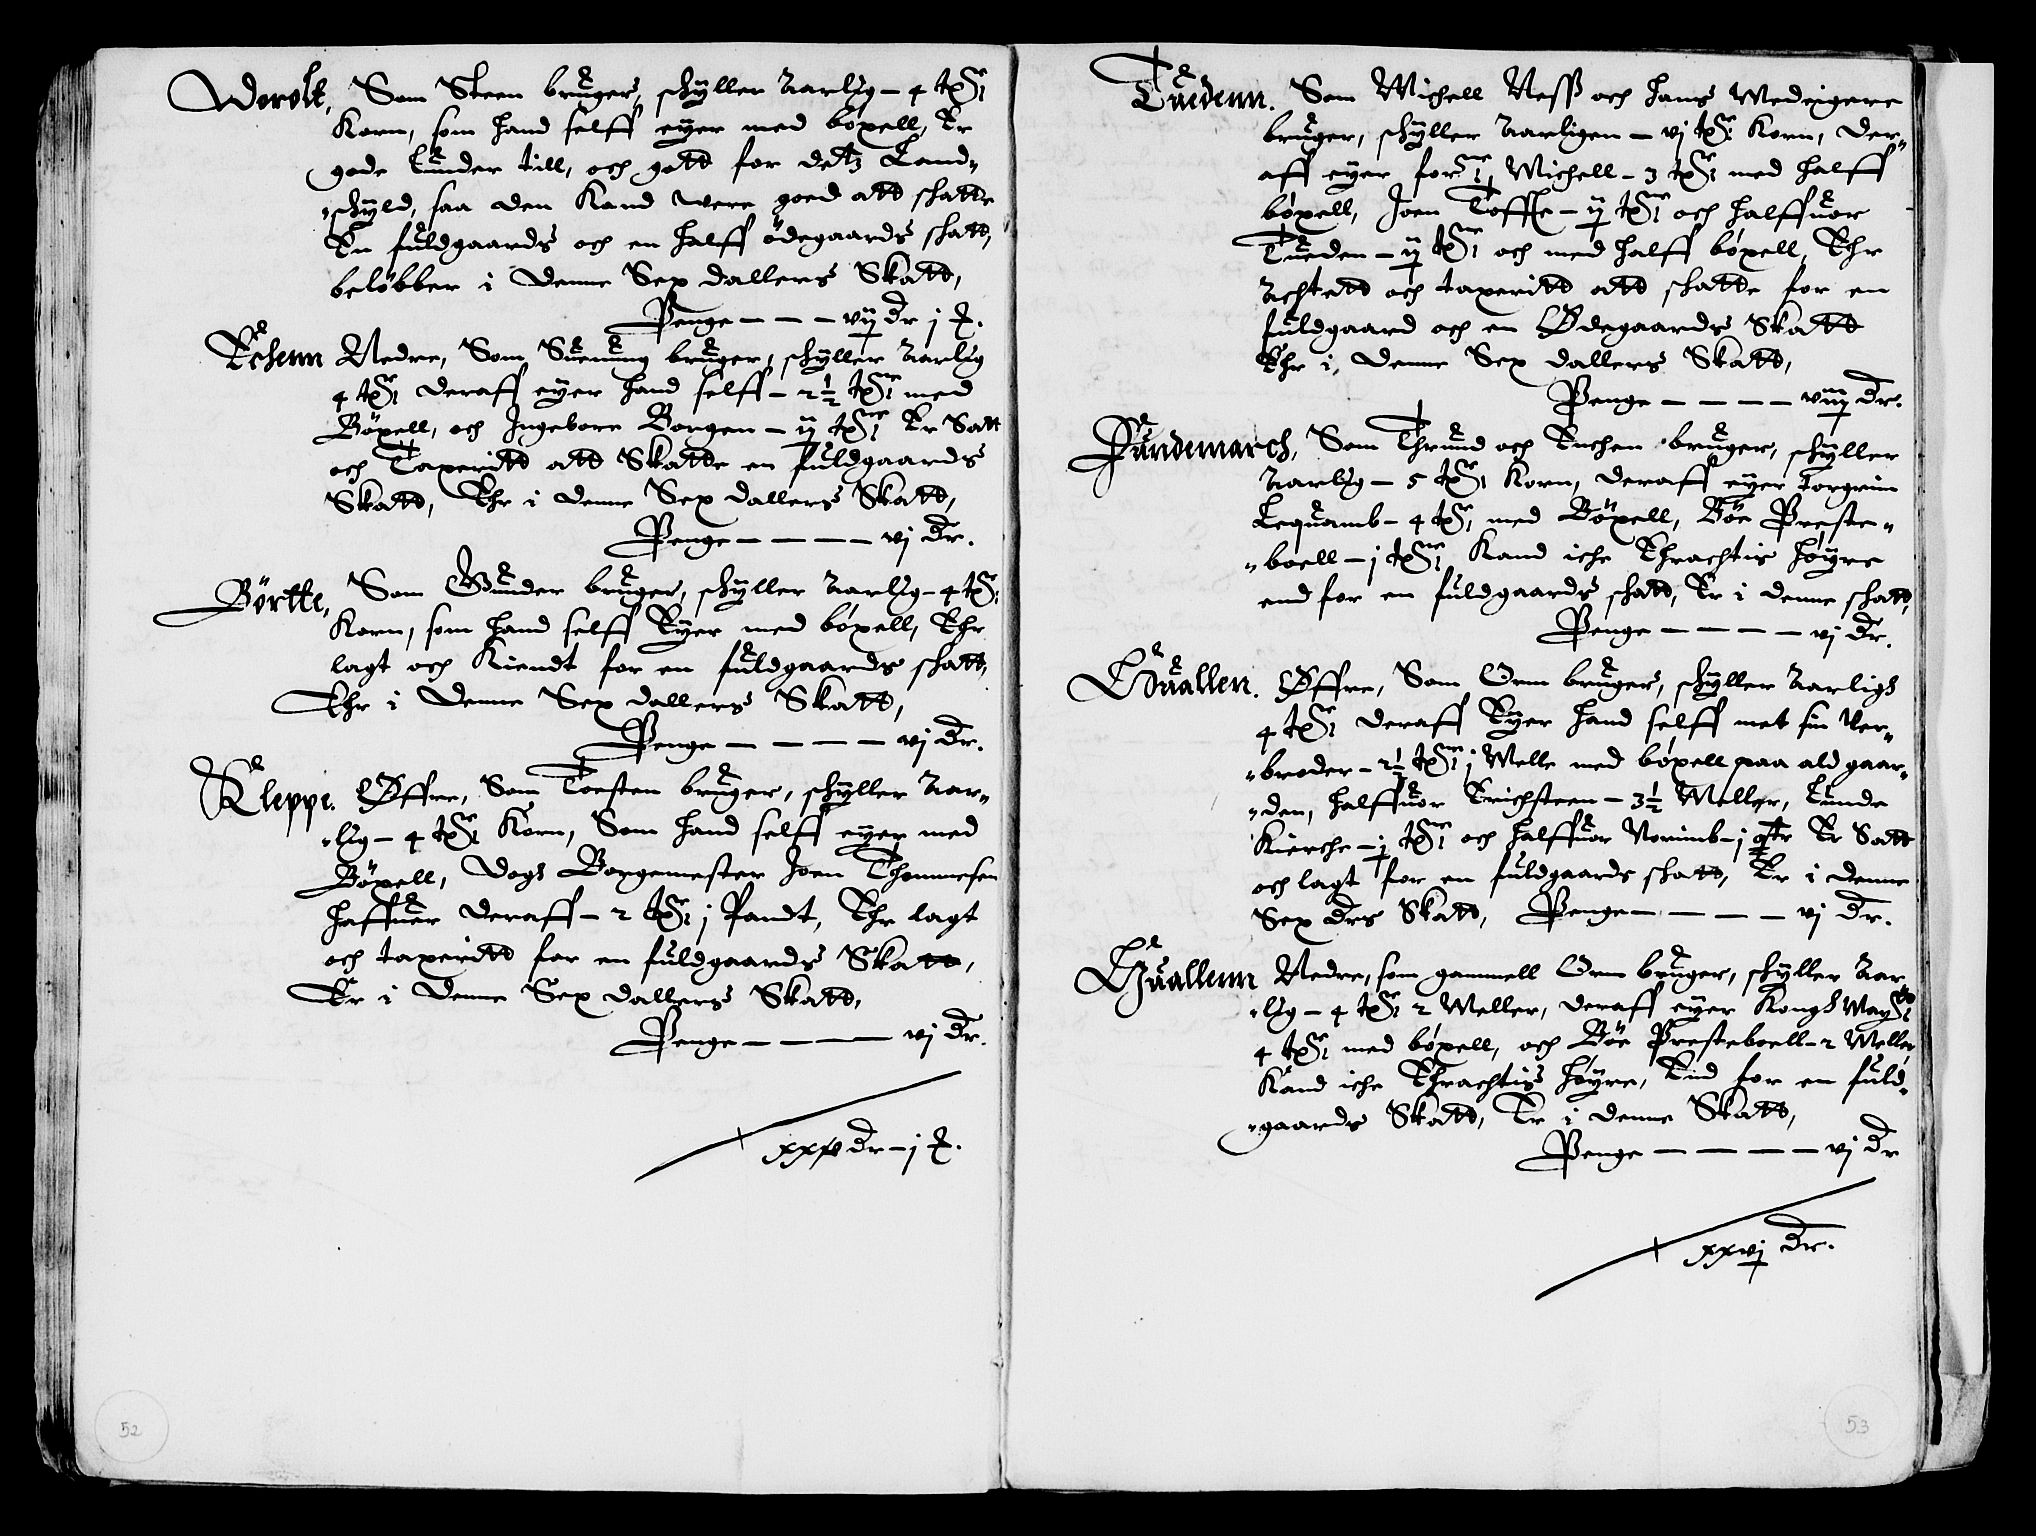 Woroldt, Som Steen bruger, schyller Aarlig – 4 tꝭr
Korn, som hand selff eyer med böxell, Er
gode Lunder till, och gott for detz Land-
-schyld, saa den Kand were goed att schatte
En fuldgaards och en halff ödegaards schatt,
belöbber i denne Sex dallers Skatt,
Penge – – – vij dr j
Echenn Nedre, Som Suenung bruger, schyller Aarlig
4 tꝭr deraff eyer hand selff – 2½ tꝭr med
Böxell, och Ingeborre Borgen – ij tꝭr Er Satt
och Taxeritt att Skatte en fuldgaards
Skatt, Ehr i denne Sex dallers Skatt,
Penge – – – – vj dr.
Börtte, Som Gunder bruger, schyller Aarlig – 4 tꝭr
Korn, som hand selff Eyer med böxell, Ehr
lagt och Kiendt for en fuldgaards schatt,
Ehr i denne Sex dallers Skatt,
Penge – – – – vj dr.
Kleppe. Øffre, Som Torsten bruger, schyller Aar-
-lig – 4 tꝭr Korn, Som hand selff eyer med
Böxell, dogh Borgemester Joen Thommesen
haffuer deraff – 2 tꝭr j Pandt, Ehr lagt
och taxeridt for en fuldgaards Skatt,
Er i denne Sex dallers Skatt,
Penge – – – – vj dr.
xxv dr – j
52
Tuedenn. Som Michell Ness och hans Medeigere
bruger, schyller Aarligen – vj tꝭr Korn, der-
aff eyer forne Michell – 3 tꝭr med halff
böxell, Joen Toffte – ij tꝭr och halffuor
Tueden – ij tꝭr och med halff böxell, Ehr
Achtatt och taxeritt att schatte for en
fuldgaard och en Ødegaards Skatt
Ehr i denne Sex dallers Skatt,
Penge – – – – viij dr.
Sundemarch, Som Thrund och Euchen bruger, schyller
Aarlig – 5 tꝭr Korn, deraff eyer Torgrim
Lequamb – 4 tꝭr med Böxell, Böe Preste-
-boell – j tꝭr Kand iche Ehrachtis höyre
end for en fuldgaards schatt, Er i denne schatt,
Penge – – – – vj dr.
Huallen. Øffre, Som Orm bruger, schyller Aarligh
4 tꝭr deraff Eyer hand selff met sin Ver-
-broder – 2½ tꝭr j Melle med böxell paa ald gaar-
-den, halffuor Erichsteen – 3½ Meller, Lunde
Kierche – j tꝭr och halffuor Norimb – j qtr Er Satt
och lagt for en fuldgaards schatt, Er i denne
Sex drs Skatt, Penge – – – – vj dr.
Huallenn Nedre, som gammell Orm bruger, schyller Aar
-lig – 4 tꝭr 2 Meller, deraff eyer Kongh Maytz
4 tꝭr med böxell, och Böe Presteboell – 2 Meller
Kand iche Ehrachtis höyre, End for en fuld-
-gaards Skatt, Er i denne Skatt,
Penge – – – – vj dr
xxvj dr.
53